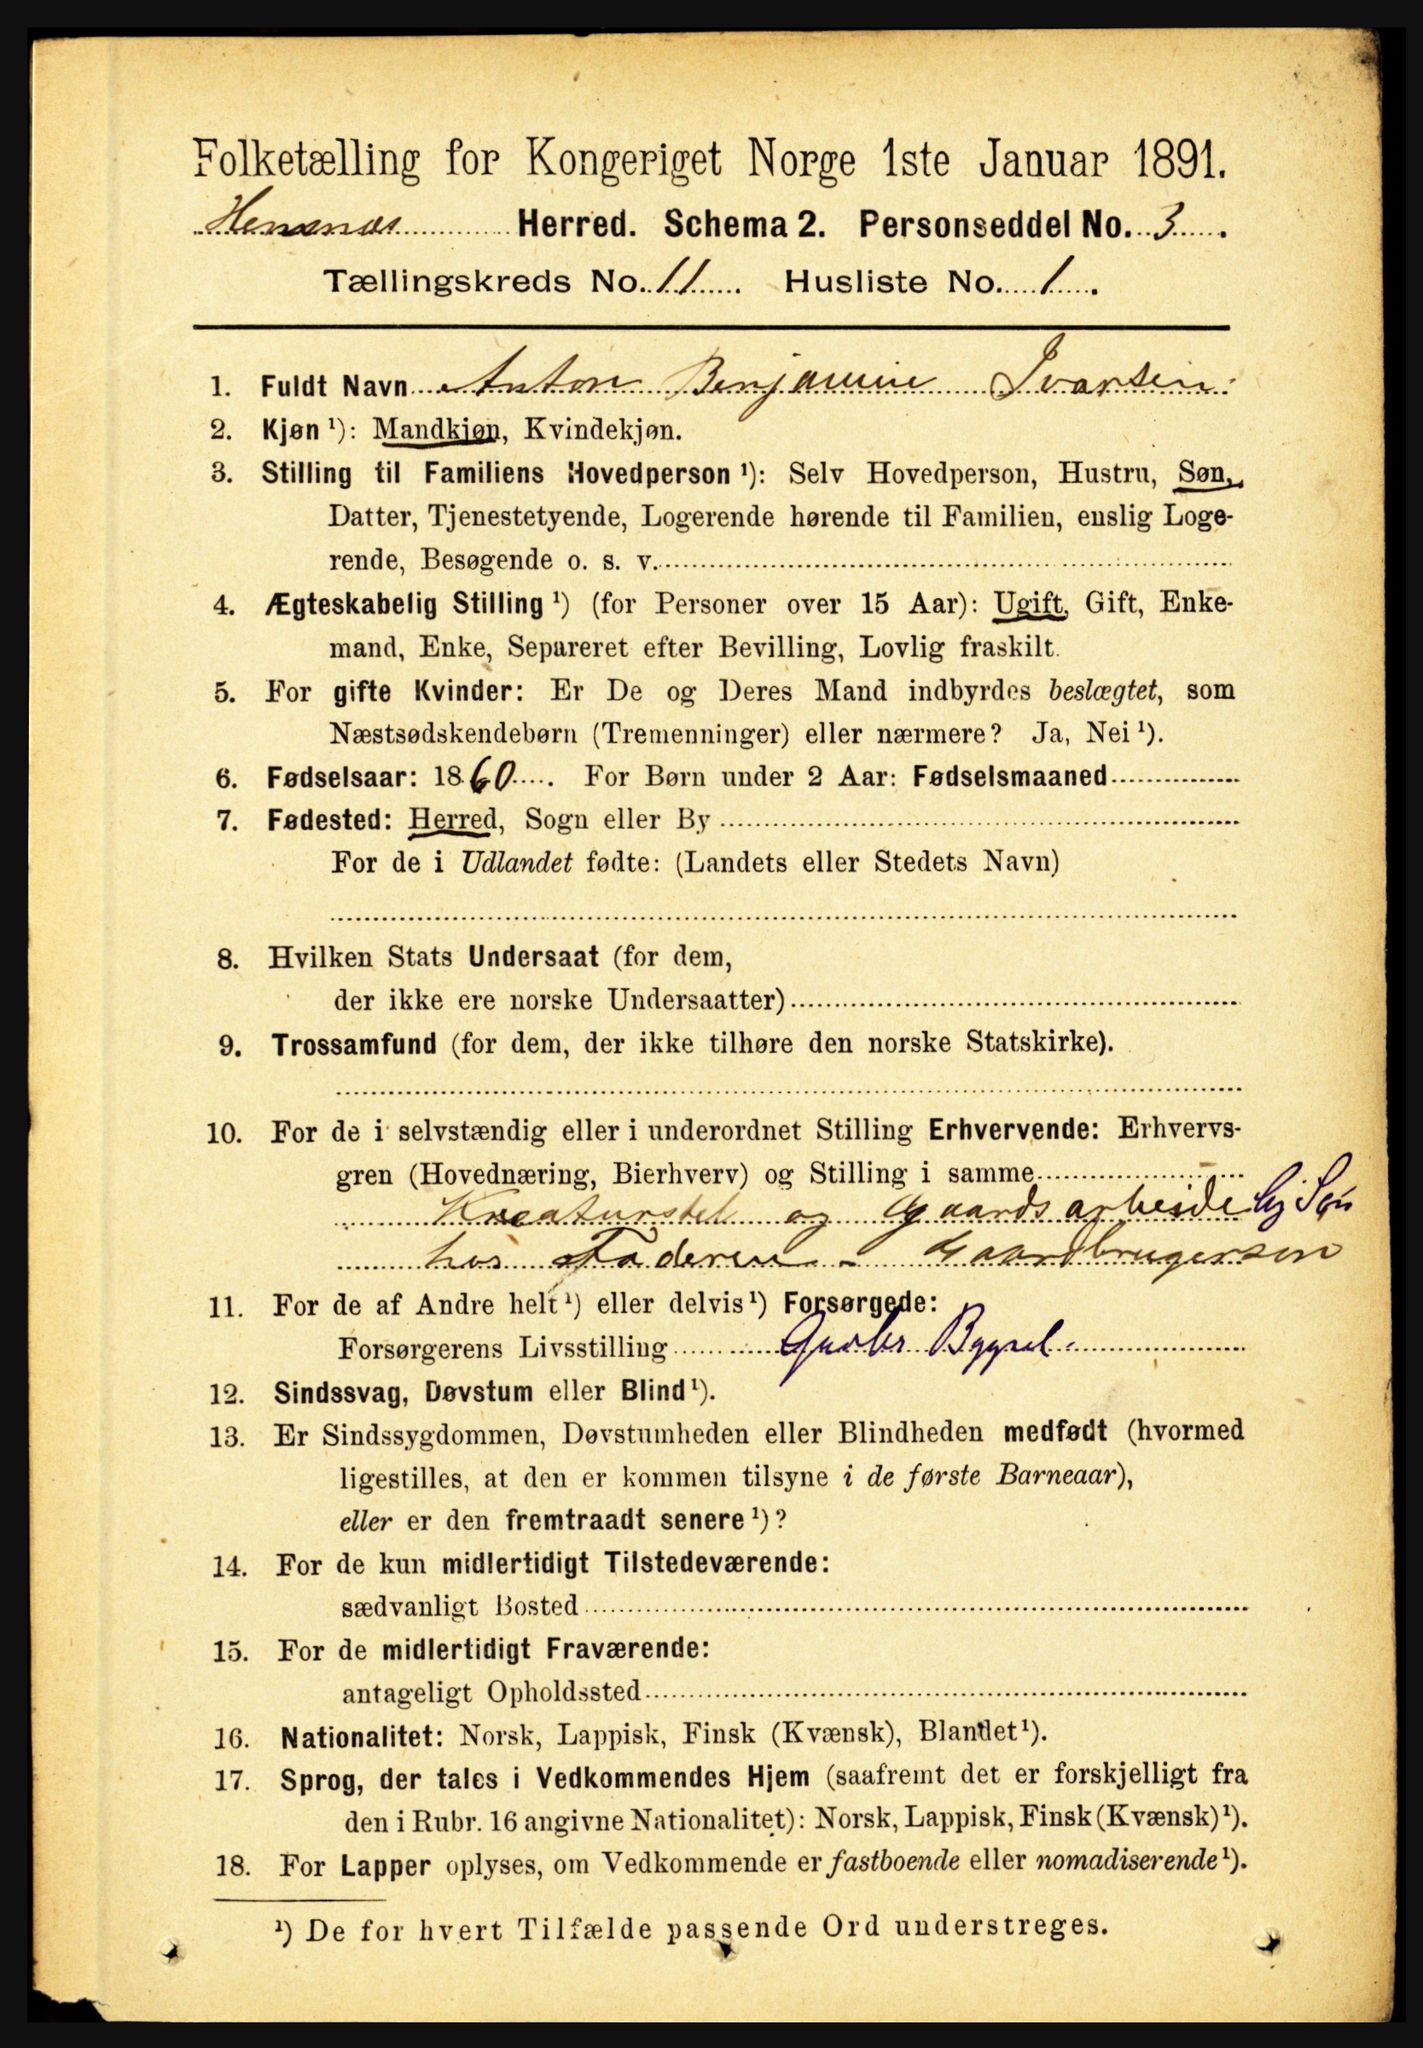 Folketælling for Kongeriget Norge 1ste Januar 1891.
Hemnæs Herred. Schema 2. Personseddel No. 3.
Tællingskreds No. 11. Husliste No. 1.
1. Fuldt Navn Anton Benjamin Ivarsen
2. Kjøn ¹): Mandkjøn, Kvindekjøn.
3. Stilling til Familiens Hovedperson ¹): Selv Hovedperson, Hustru, Søn,
Datter, Tjenestetyende, Logerende hørende til Familien, enslig Loge-
rende, Besøgende o. s. v.
4. Ægteskabelig Stilling ¹) (for Personer over 15 Aar): Ugift, Gift, Enke-
mand, Enke, Separeret efter Bevilling, Lovlig fraskilt.
5. For gifte Kvinder: Er De og Deres Mand indbyrdes beslægtet, som
Næstsødskendebørn (Tremenninger) eller nærmere? Ja, Nei ¹).
6. Fødselsaar: 1860. For Børn under 2 Aar: Fødselsmaaned
7. Fødested: Herred, Sogn eller By
For de i Udlandet fødte: (Landets eller Stedets Navn)
8. Hvilken Stats Undersaat (for dem,
der ikke ere norske Undersaatter)
9. Trossamfund (for dem, der ikke tilhøre den norske Statskirke).
10. For de i selvstændig eller i underordnet Stilling Erhvervende: Erhvervs-
gren (Hovednæring, Bierhverv) og Stilling i samme
Kreaturstel og Gaardsarbeide Gj. Søn
hos Faderen - Gaardbrugersøn
11. For de af Andre helt ¹) eller delvis ¹) Forsørgede:
Forsørgerens Livsstilling Gaardbr Bygsel.
12. Sindssvag, Døvstum eller Blind ¹).
13. Er Sindssygdommen, Døvstumheden eller Blindheden medfødt (hvormed
ligestilles, at den er kommen tilsyne i de første Barneaar),
eller er den fremtraadt senere ¹)?
14. For de kun midlertidigt Tilstedeværende:
sædvanligt Bosted
15. For de midlertidigt Fraværende:
antageligt Opholdssted
16. Nationalitet: Norsk, Lappisk, Finsk (Kvænsk), Blandet ¹).
17. Sprog, der tales i Vedkommendes Hjem (saafremt det er forskjelligt fra
den i Rubr. 16 angivne Nationalitet): Norsk, Lappisk, Finsk (Kvænsk) ¹).
18. For Lapper oplyses, om Vedkommende er fastboende eller nomadiserende ¹).
¹) De for hvert Tilfælde passende Ord understreges.